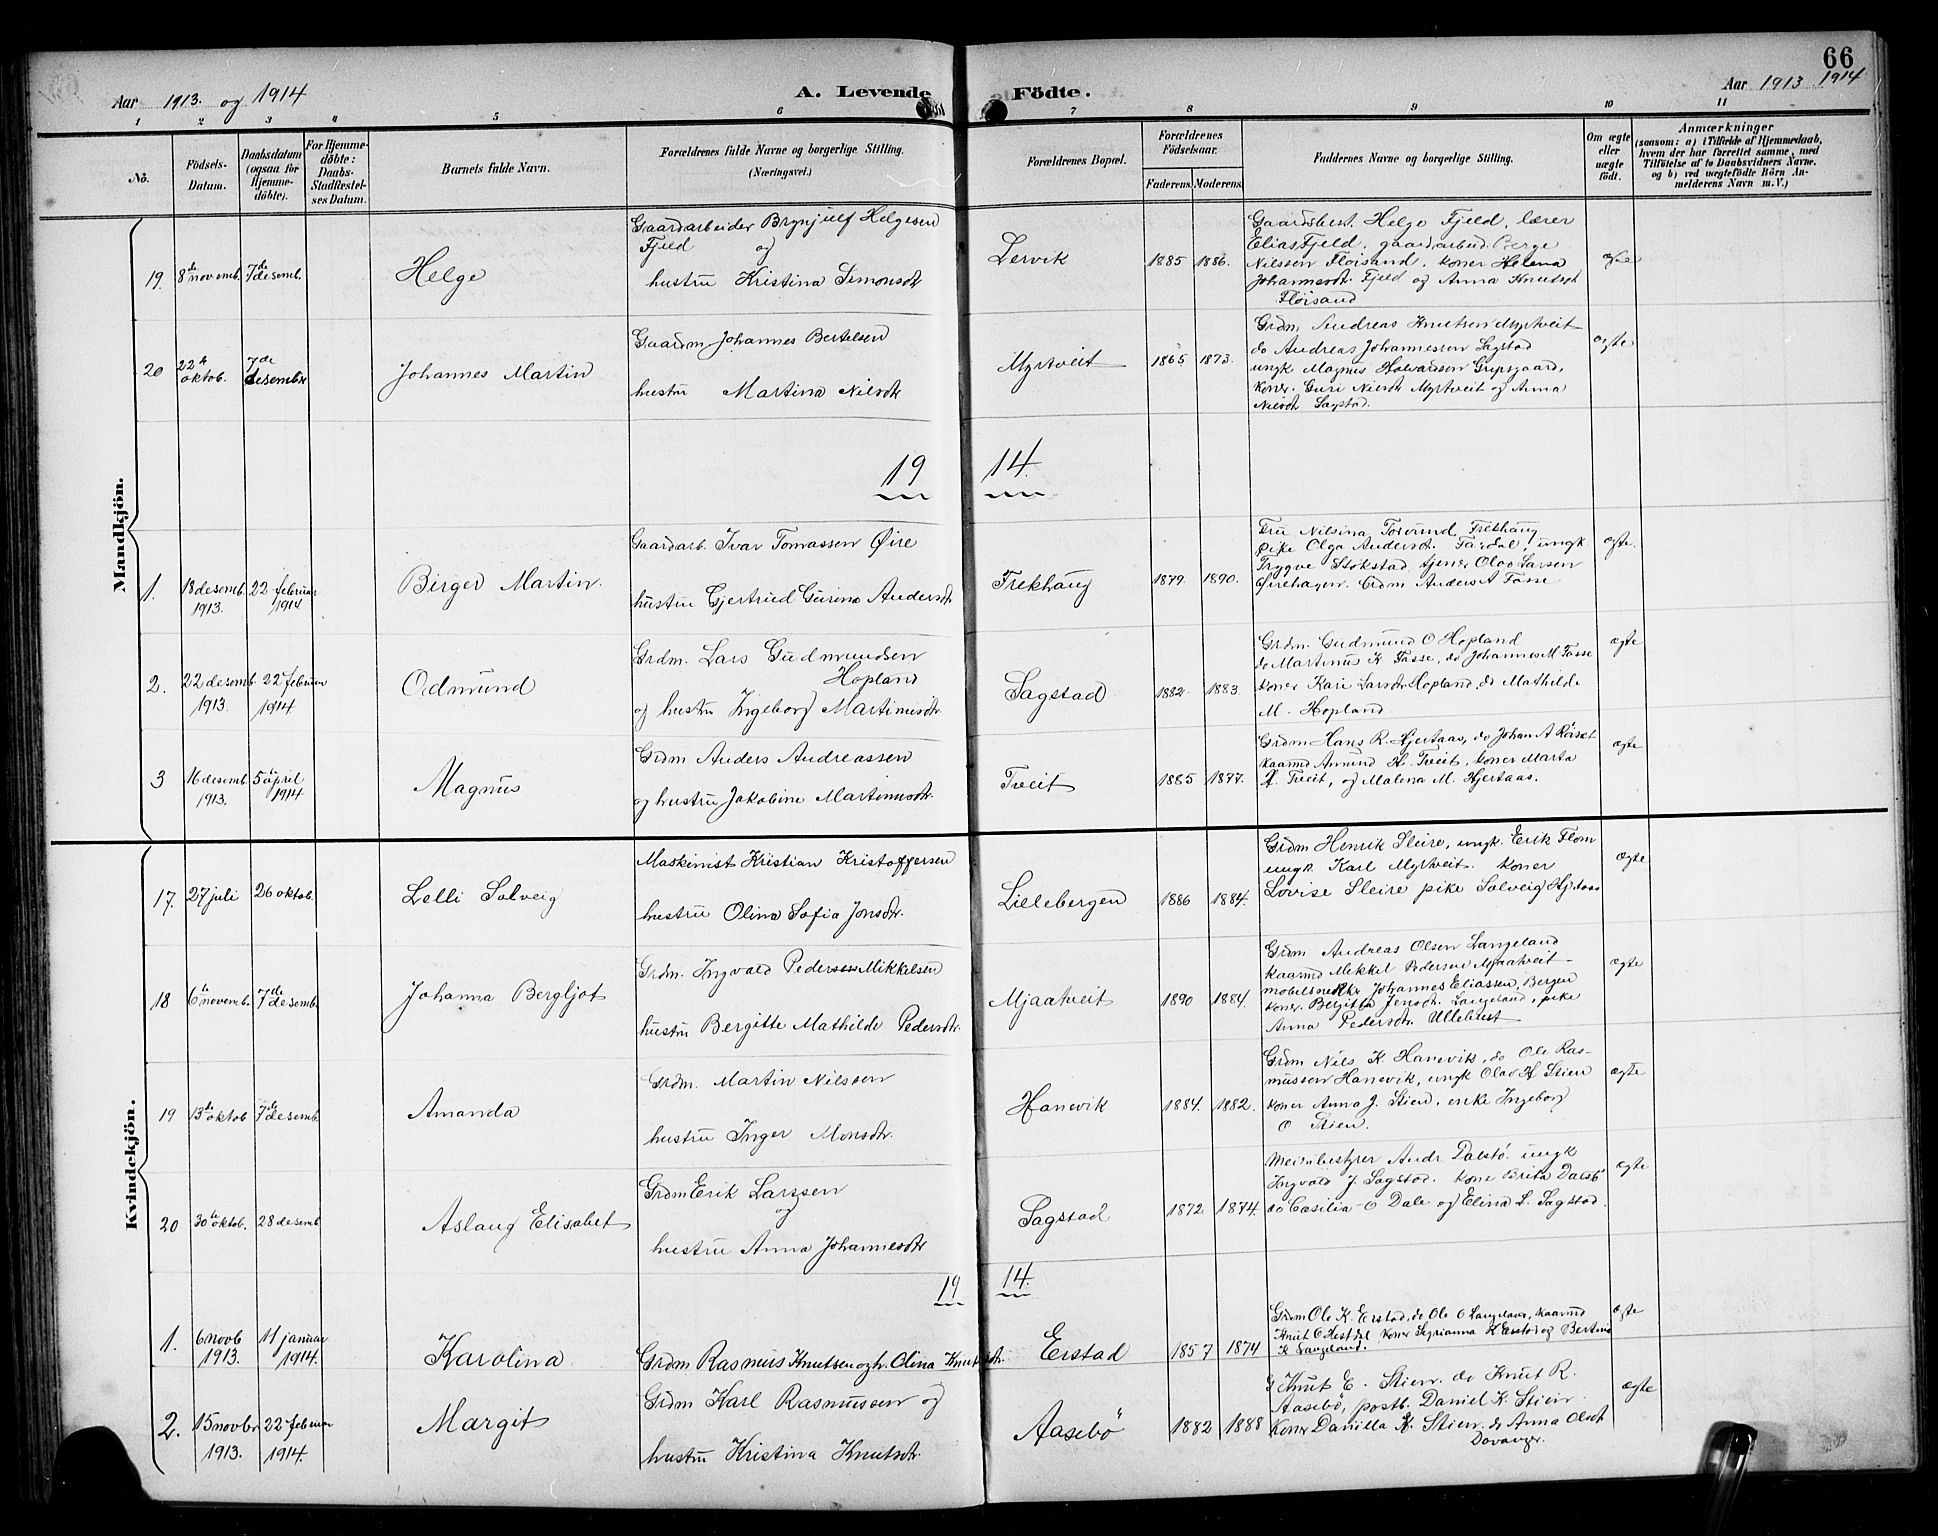 66
Aar 1913. og 1914
A. Levende Födte.
Aar 1913 1914
1 2 3 4 5 6 7 8 9 10 11
No.
Födsels-
Datum.
Daabsdatum
(ogsaa for
Hjemme-
döbte).
For Hjemme-
döbte:
Daabs-
Stadfæstel-
ses Datum.
Barnets fulde Navn.
Forældrenes fulde Navne og borgerlige Stilling.
(Næringsvei.)
Forældrenes Bopæl.
Forældrenes
Födselsaar.
Faderens. Moderens.
Faddernes Navne og borgerlige Stilling.
Om ægte
eller
uægte
födt.
Anmærkninger
(saasom: a) i Tilfælde af Hjemmedaab,
hvem der har forrettet samme, med
Tilföielse af to Daabsvidners Navne.
og b) ved uægtefödte Börn An-
melderens Navn m. V.)
Mandkjön.
19 8de novemb. 7de desemb.
Helge
Gaardarbeider Brynjulf Helgesen
Fjeld og
hustru Kristina Simonsdtr
Lervik
1885 1886.
Gaardsbest. Helge Fjeld, lærer
Elias Fjeld, gaardarbeid. Berge
Nilssen Floisand, koner Helena
Johannesdtr. Fjeld og Anna Knutsdt
Floisand
ægte
20 22de oktob. 7de desembr
Johannes Martin
Gaardm Johannes Bertelsen
hustru Martina Nilsdtr
Myrtveit
1865 1873.
Grdm. Andreas Knutsen Myrtveit
do Andreas Johannessen Sagstad
ungk Magnus Halvardsen Gripsgaard,
koner. Guri Nilsdtr Myrtveit og Anna
Nilsdtr Sagstad.
ægte
19 14.
1. 18 desemb. 1913. 22 februar 1914
Birger Martin.
Gaardarb. Ivar Tomassen Øire
hustru Gjertrud Gurina Andersdtr
Frekhaug
1879. 1890.
Fru Nilsina Torsund, Frekhaug
pike Olga Andersdtr. Fardal, ungk
Trygve Stokstad, tjener Olav Larsen
Øirehagen. Grdm Anders A Fosse
ægte.
2. 22 desemb 1913. 22 februar 1914
Odmund
Grdm. Lars Gudmundsen
Hopland
og hustru Ingeborg Martinusdtr.
Sagstad
1882. 1883.
Grdm. Gudmund O Hopland
do Martinus K. Fosse, do Johannes M. Fosse
koner Kari Larsdtr Hopland, do Mathilde
M. Hopland.
ægte
3 16 desemb. 1913. 5 april 1914
Magnus
Grdm Anders Andreassen
og hustru Jakobine Martinusdtr.
Tveit
1885 1877.
Grdm Hans R. Hjertaas, do Johan A Röiset
kaarmd Amund H. Tveit, koner Marta
A. Tveit, og Malena M. Hjertaas.
ægte
Kvindekjön.
17. 27 juli 26 oktob.
Lelli Solveig
Maskinist Kristian Kristoffersen
hustru Olina Sofia Jonsdtr.
Lillebergen
1886 1884.
Grdm Henrik Sleire, ungk. Erik Flom
ungk. Karl Myrtveit. koner
Lovise Sleire pike Solveig Hjrtaas
ægte
18 6te novemb. 7de desembr
Johanna Bergljot
Grdm. Ingvald Pedersen Mikkelsen
hustru Bergitte Mathilde Pedersdtr.
Mjaatveit
1890 1884.
Grdm Andreas Olsen Langeland
kaarmd Mikkel Pedersen Mjaatveit
mobelsnedker Johannes Eliassen, Bergen
koner. Bergitta Jensdtr. Langeland, pike
Anna Pedersdtr. Ulleberst
ægte
19 13de oktob 7de desemb.
Amanda
Grdm. Martin Nilssen
hustru Inger Monsdtr.
Hanevik
1884. 1882.
Grdm Nils K. Hanevik, do Ole Ras-
mussen Hanevik, ungk Olav H Stien
koner Anna J. Stien, enke Ingeborg
O Stien.
ægte
20 30te oktob. 28 desemb
Aslaug Elisabet
Grdm Erik Larssen
og
hustru Anna Johannesdtr
Sagstad
1872 1874.
Meieribestyrer Andr. Dalstö. ungk
Ingvald J. Sagstad. kone Brita Dalstö
do Casilia O Dale og Elina L. Sagstad.
ægte
19 14.
1. 6 novb 1913. 11 januar 1914.
Karolina
Grdm Rasmus Knutsen og h. Olina Knutsdtr.
Erstad
1857 1874
Grdm Ole K. Erstad, do Ole O Langeland, kaarmd
Knut O Hestdal koner Syrianna K Erstad og Bertina
K Langeland.
ægte
2. 15 novbr 1913. 22 februar 1914.
Margit
Grdm Karl Rasmussen og
hustru Kristina Knutsdtr
Aasebö
1882 1888
G Knut E. Stien. do Knut R.
Aasebö, postb. Daniel K. Stien.
koner Danilla K. Stien, do Anna Olsdt
Dovanger.
ægte